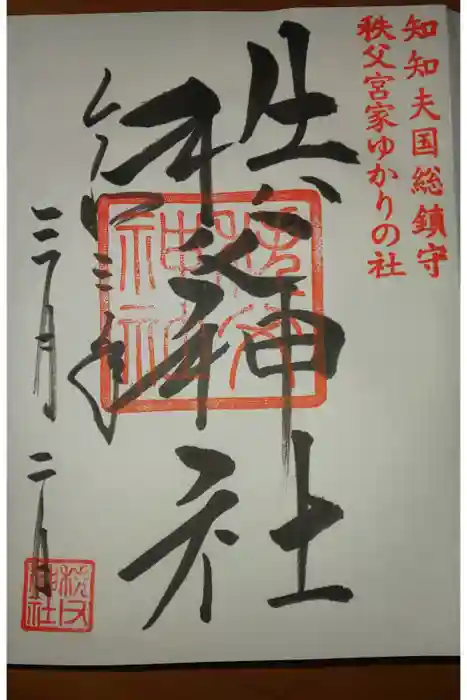 知知夫国総鎮守
秩父宮家ゆかりの社
秩父神社
秩父神社
令和三年
三月二日
秩父神社